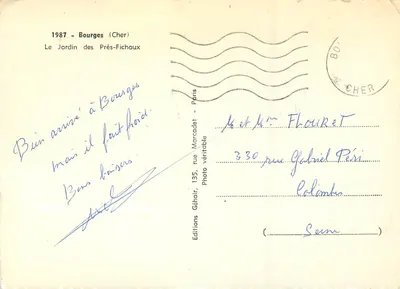 1987 - Bourges (Cher)
Le Jardin des Prés-Fichaux
Bien arrivé à Bourges
mais il fait froid.
Bons baisers
Editions Gabair, 135, rue Marcadet - Paris
Photo véritable
BO
CHER
M et Mme FLOURET
330 rue Gabriel Péri
Colombes
(Seine)